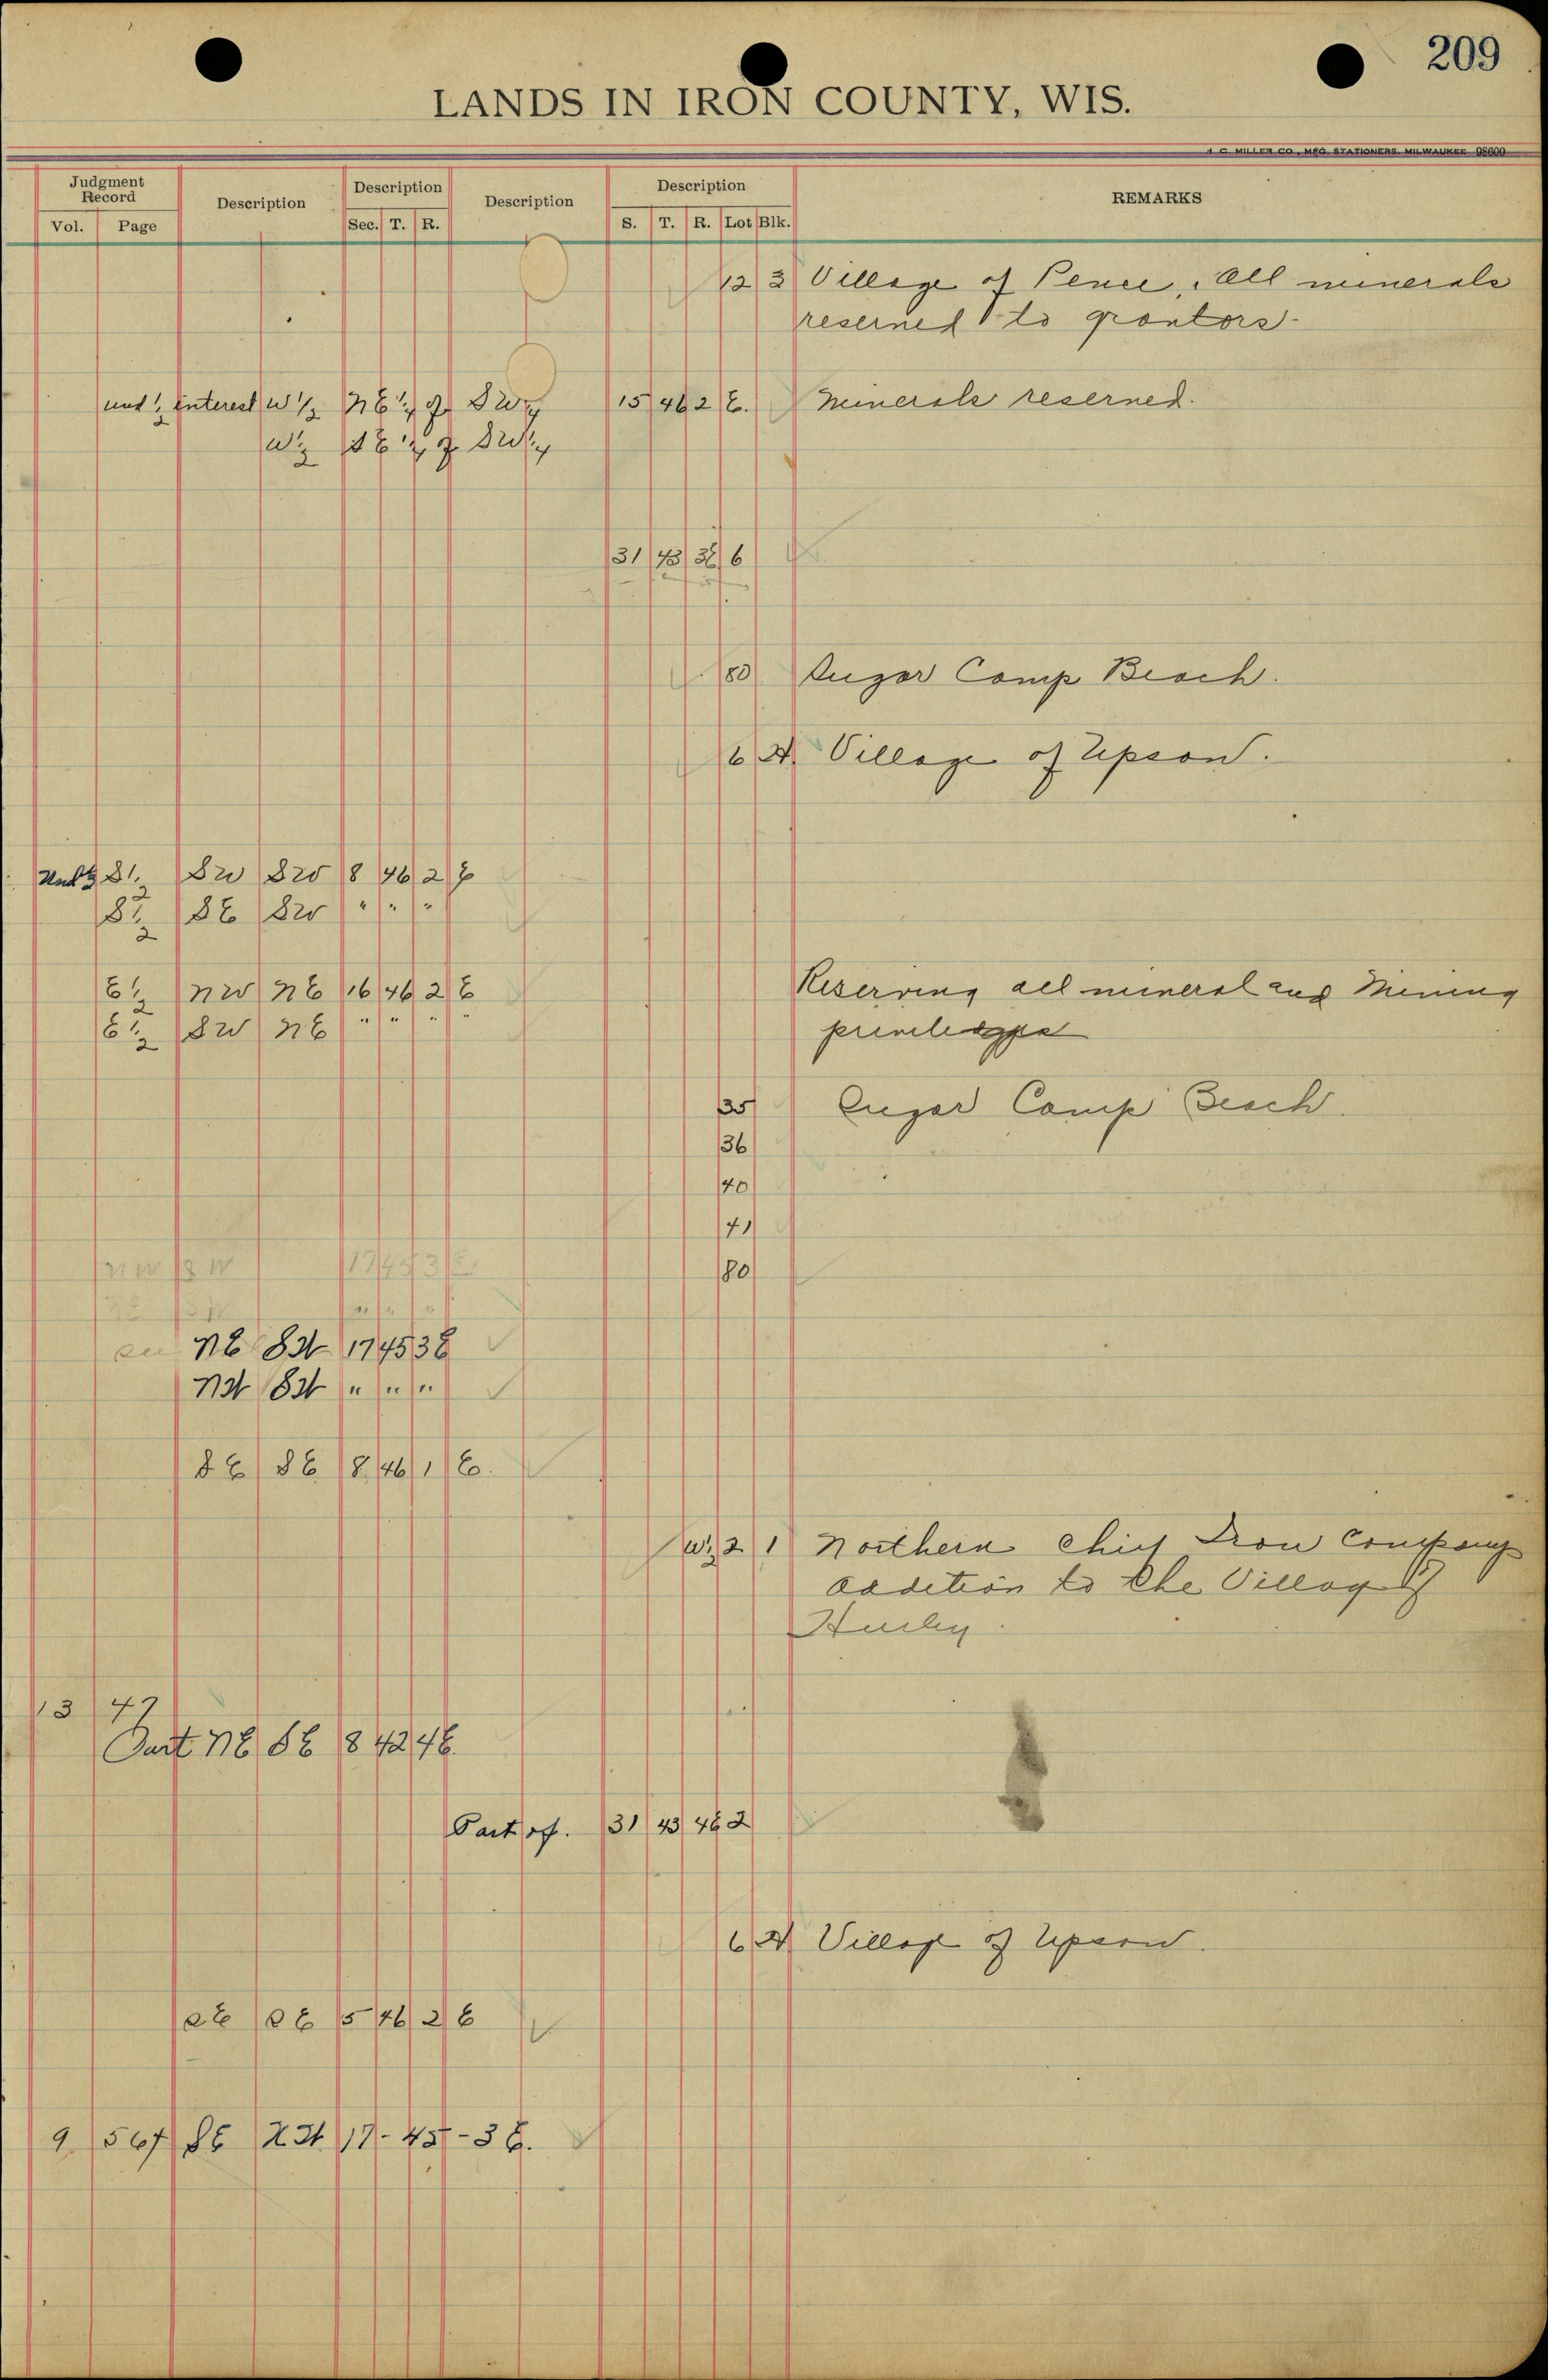 209
LANDS IN IRON COUNTY, WIS.
H. C. MILLER CO., MFG. STATIONERS, MILWAUKEE 98600
Judgment Record Description Description Description Description REMARKS
Vol. Page Sec. T. R. S. T. R. Lot Blk.
12 3 Village of Pence, All minerals
reserved to grantors
und ½ interest W ½ NE ¼ of SW ¼ 15 46 2 E. Minerals reserved.
W ½ SE ¼ of SW ¼
31 43 3E 6
80 Sugar Camp Beach.
6 Village of Upson.
Und ½ S ½ SW SW 8 46 2 E
S ½ SE SW " " "
E ½ NW NE 16 46 2 E Reserving all mineral and Mining
E ½ SW NE " " " " privileges
35 Sugar Camp Beach.
36
40
41
80
NW SW 17 45 3 E
" " "
NE SW 17 45 3E
NW SW " " "
SE SE 8 46 1 E.
W ½ 2 1 Northern Chief Iron Company
addition to the Village of
Hurley
13 47
Part NE SE 8 42 4E.
Part of. 31 43 4E 2
6 Village of Upson.
SE SE 5 46 2 E
9 567 SE 17-45-3 E.